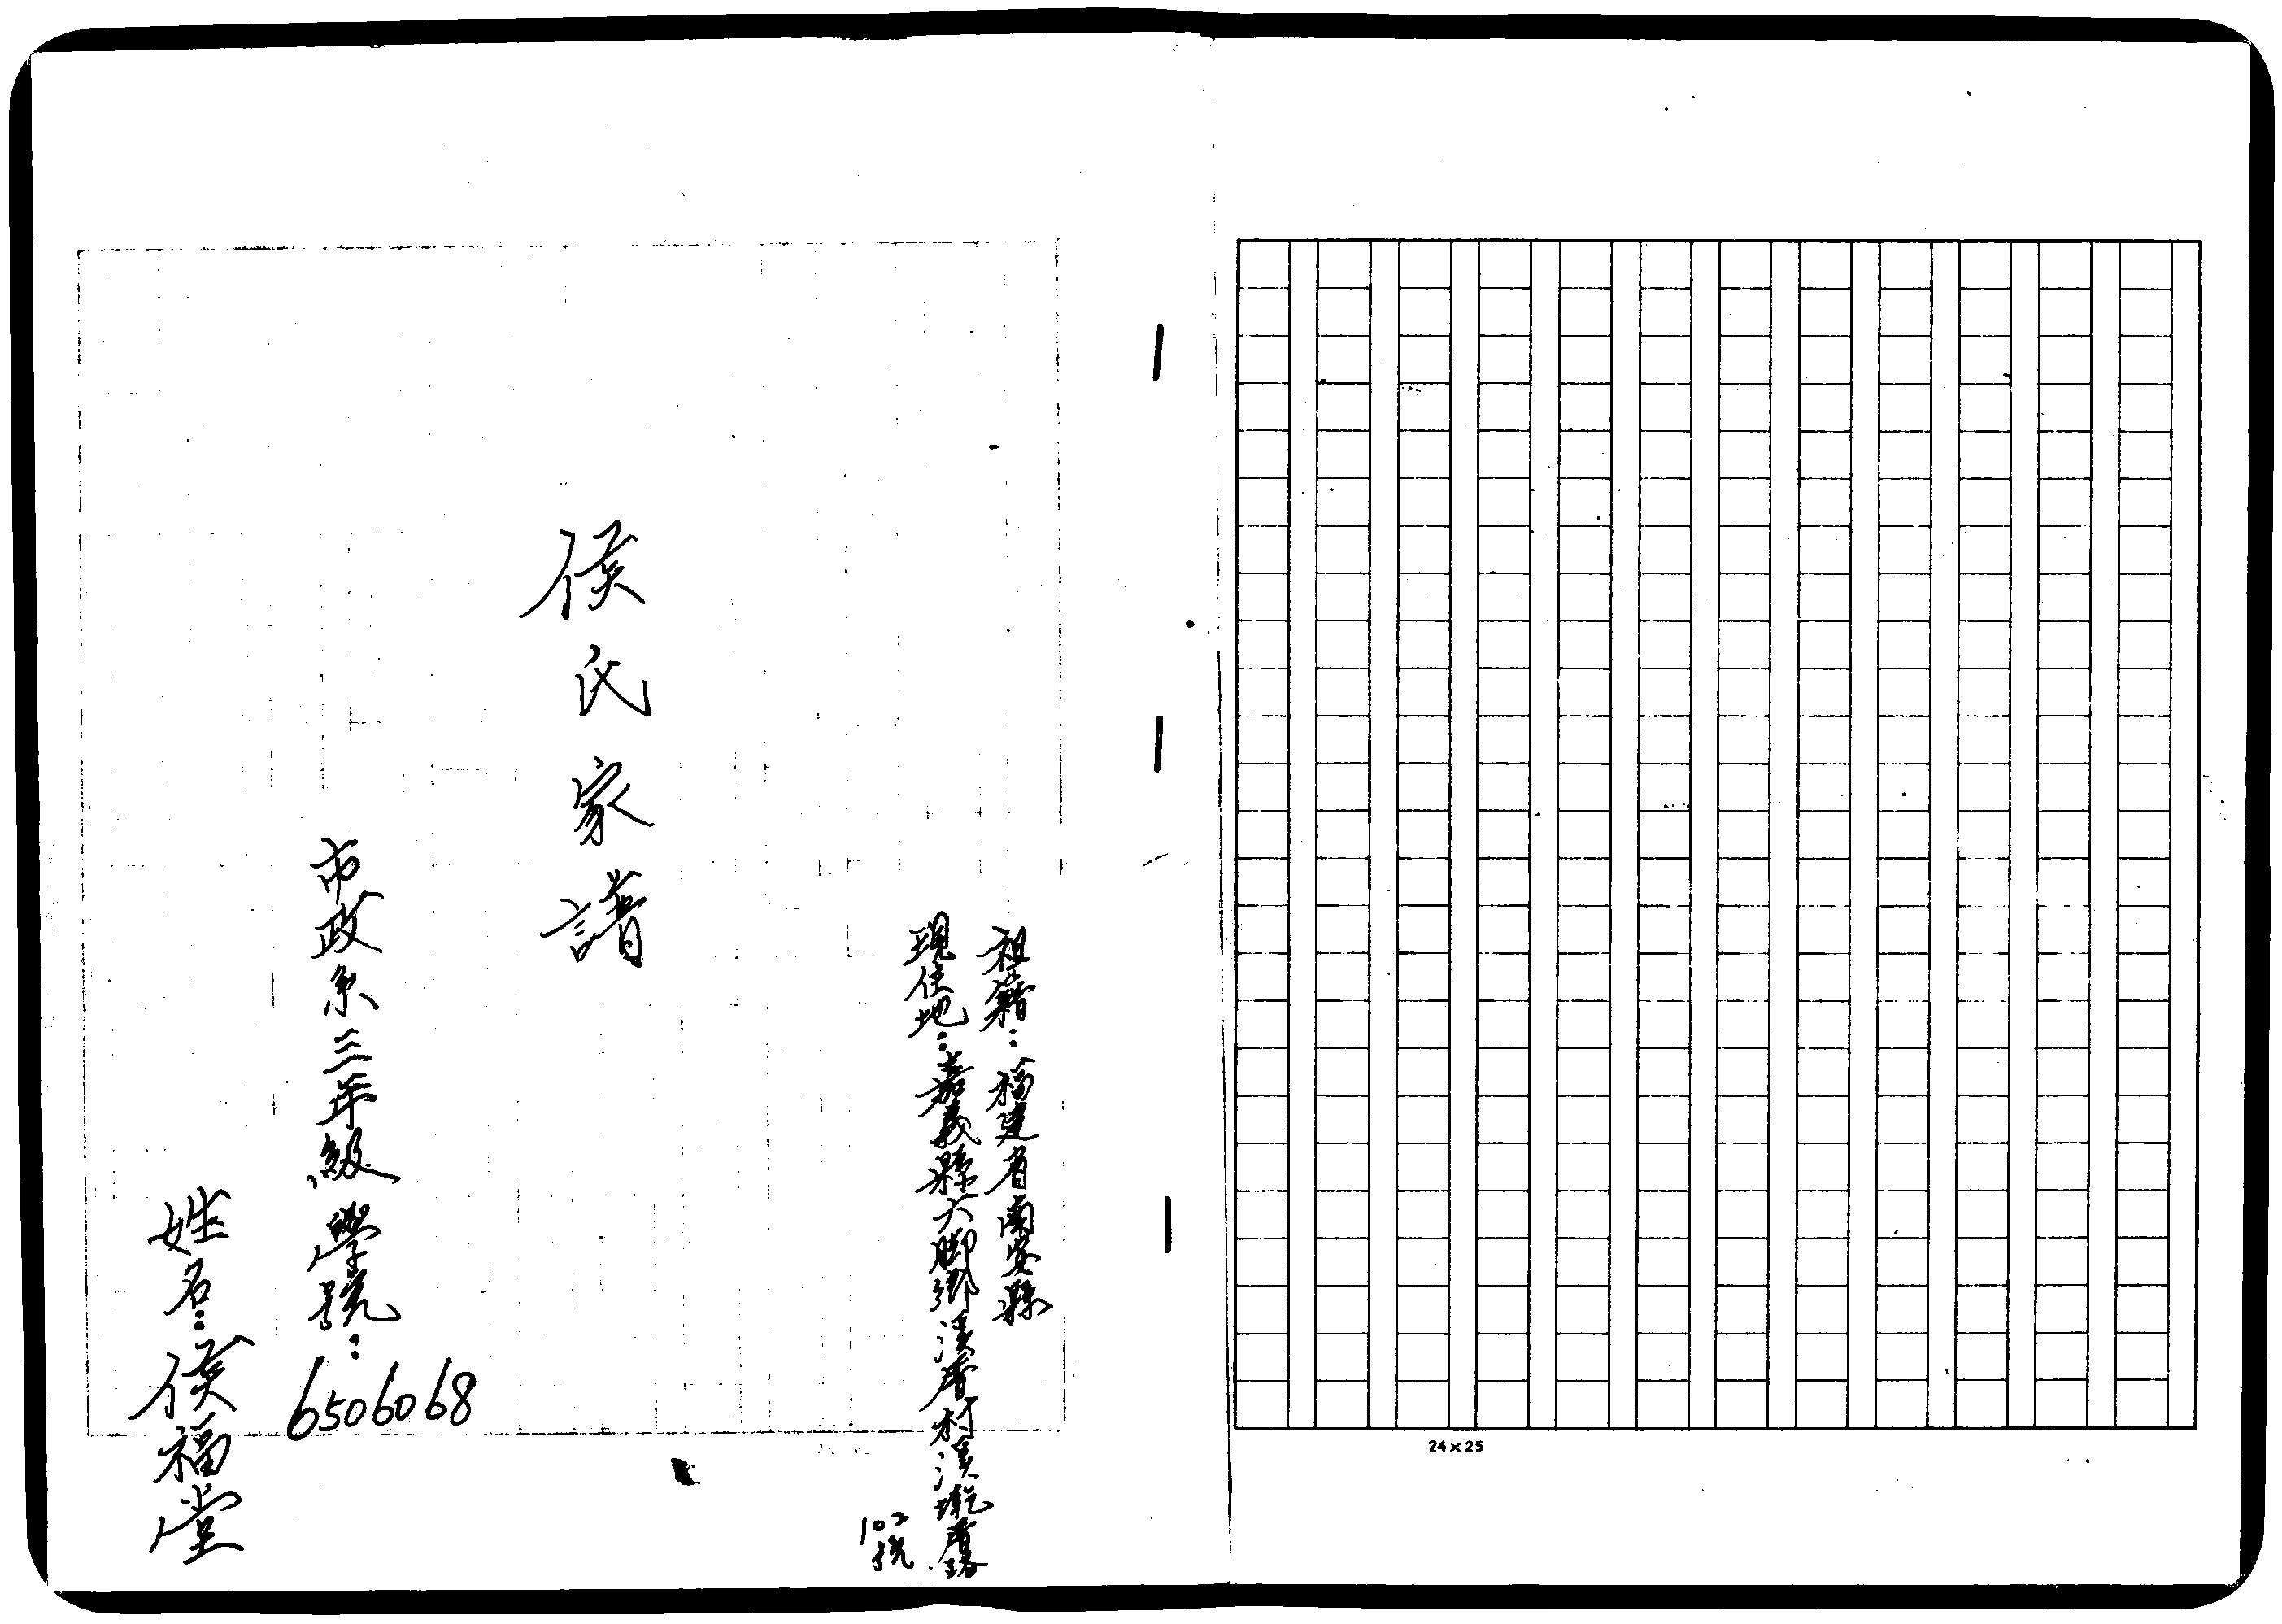 祖籍：福建省南安縣
現住地：嘉義縣六脚鄉溪厝村溪墘厝
102號
侯氏家譜
市政系三年級 學號：
6506068
姓名：侯福堂
24×25